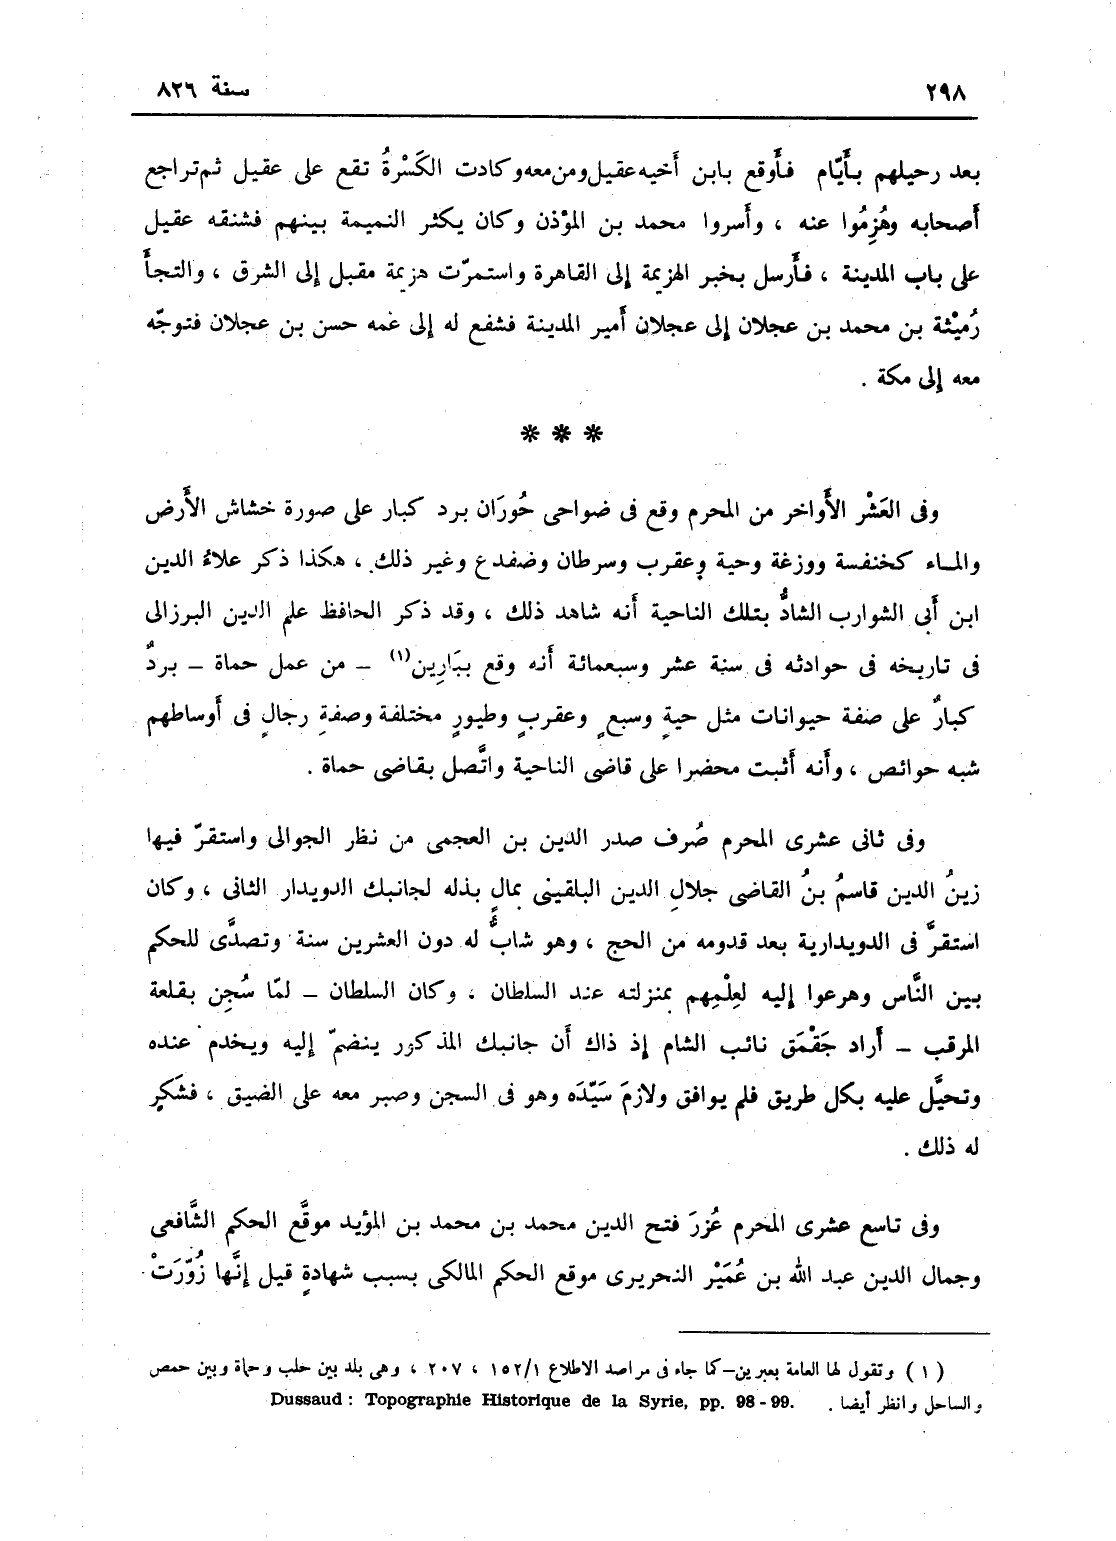 ٢٩٨
سنة ٨٢٦
بعد رحيلهم بأَيّام فأَوقع بابن أَخيه عقيل ومن معه وكادت الكَسْرةُ تقع على عقيل ثم تراجع
أَصحابه وهُزِمُوا عنه ، وأَسروا محمد بن المؤذن وكان يكثر النميمة بينهم فشنقه عقيل
على باب المدينة ، فأَرسل بخبر الهزيمة إلى القاهرة واستمرّت هزيمة مقبل إلى الشرق ، والتجأَ
رُمَيْثة بن محمد بن عجلان إلى عجلان أَمير المدينة فشفع له إلى عمه حسن بن عجلان فتوجّه
معه إلى مكة .
* * *
وفى العَشْر الأَواخر من المحرم وقع فى ضواحى حُورَان برد كبار على صورة خشاش الأَرض
والمـاء كخنفسة ووزغة وحية وعقرب وسرطان وضفدع وغير ذلك ، هكذا ذكر علاءُ الدين
ابن أَبى الشوارب الشادُّ بتلك الناحية أَنه شاهد ذلك ، وقد ذكر الحافظ علم الدين البرزالى
فى تاريخه فى حوادثه فى سنة عشر وسبعمائة أَنه وقع ببَارِين(١) – من عمل حماة – بردٌ
كبارٌ على صفة حيوانات مثل حيةٍ وسبعٍ وعقربٍ وطيورٍ مختلفة وصفةِ رجالٍ فى أَوساطهم
شبه حوائص ، وأَنه أَثبت محضرا على قاضى الناحية واتَّصل بقاضى حماة .
وفى ثانى عشرى المحرم صُرف صدر الدين بن العجمى من نظر الجوالى واستقرّ فيها
زينُ الدين قاسمُ بنُ القاضى جلالِ الدين البلقينى بمالٍ بذله لجانبك الدويدار الثانى ، وكان
استقرَّ فى الدويدارية بعد قدومه من الحج ، وهو شابٌّ له دون العشرين سنة وتصدَّى للحكم
بين النَّاس وهرعوا إليه لعِلْمِهم بمنزلته عند السلطان ، وكان السلطان – لمّا سُجِن بقلعة
المرقب – أَراد جَقْمَق نائب الشام إذ ذاك أَن جانبك المذكور ينضمّ إليه ويخدم عنده
وتحيَّل عليه بكل طريق فلم يوافق ولازمَ سَيّدَه وهو فى السجن وصبر معه على الضيق ، فشَكر
له ذلك .
وفى تاسع عشرى المحرم عُزرَ فتح الدين محمد بن محمد بن المؤيد موقَّع الحكم الشَّافعى
وجمال الدين عبد الله بن عُمَيْر النحريرى موقع الحكم المالكى بسبب شهادةٍ قيل إنَّها زُوّرَتْ
(١) وتقول لها العامة بعبرين–كما جاء فى مراصد الاطلاع ١/١٥٢ ، ٢٠٧ ، وهى بلد بين حلب وحماة وبين حمص
والساحل وانظر أيضا . Dussaud : Topographie Historique de la Syrie, pp. 98 - 99.